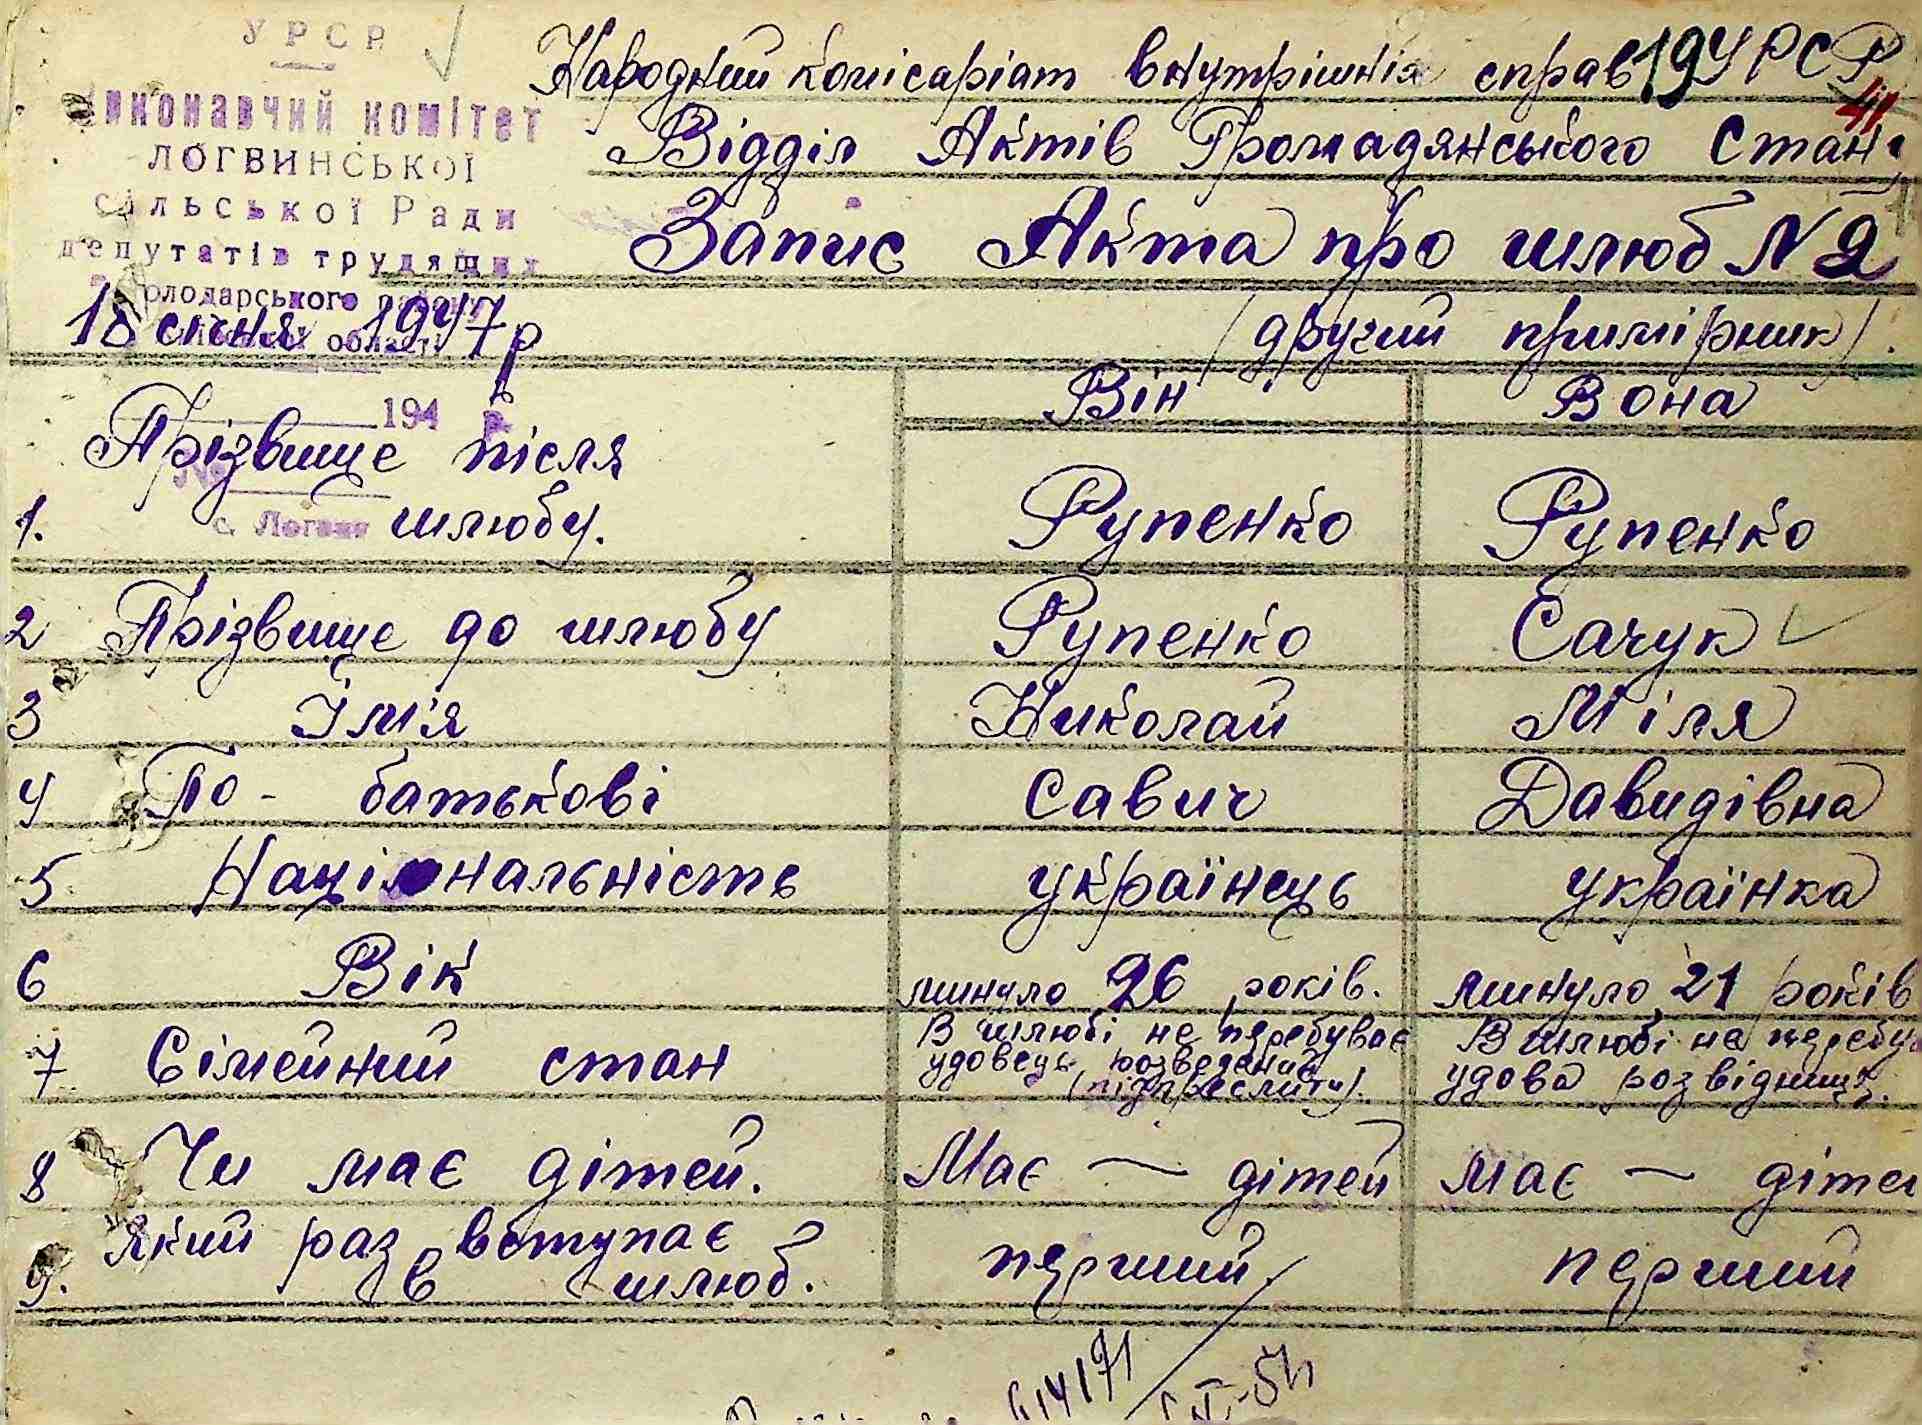 УРСР
Виконавчий комітет
ЛОГВИНСЬКОЇ
сільської Ради
депутатів трудящих
Володарського району
області
18 січня 1947 р
194
№
с. Логвин
Народний комісаріат внутрішніх справ УРСР
19
41
Відділ Актів Громадянського Стану
Запис Акта про шлюб N 2
(другий примірник).
Він Вона
1. Прізвище після шлюбу. Рупенко Рупенко
2 Прізвище до шлюбу Рупенко Сачук
3 Ім'я Николай Міля
4 По-батькові Савич Давидівна
5 Національність українець українка
6 Вік минуло 26 років. минуло 21 років
7 Сімейний стан В шлюбі не перебуває удовець розведений (підкреслити). В шлюбі не перебу удова розвідниця.
8 Чи має дітей. Має — дітей має — діте
9. Який раз вступає в шлюб. перший перший